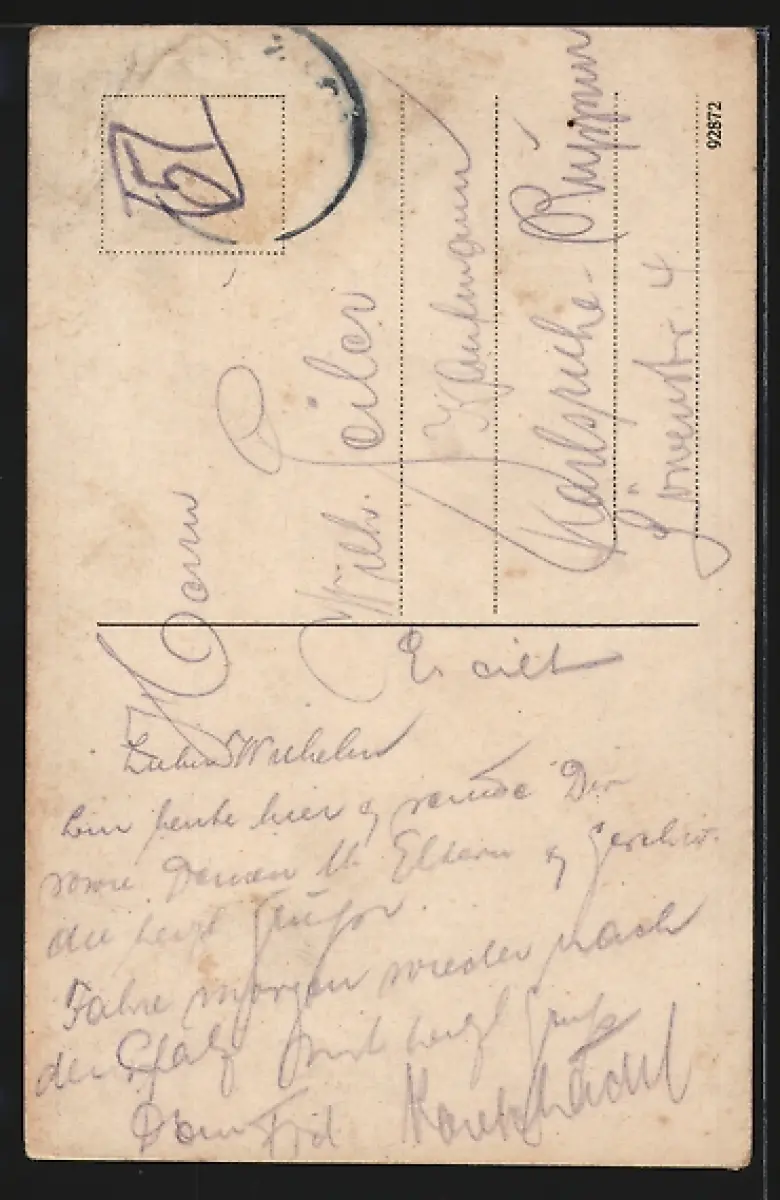 15
Herrn
Wilh. Seiler
Kaufmann
Karlsruhe-Rüppurr
Löwenstr. 4
92872
Es eilt
Lieber Wilhelm
bin heute hier & sende Dir
sowie Deinen lb. Eltern & Geschw.
die herzl Grüße.
Fahre morgen wieder nach
der Pfalz mit herzl Gruß
Dein Frd. Karl